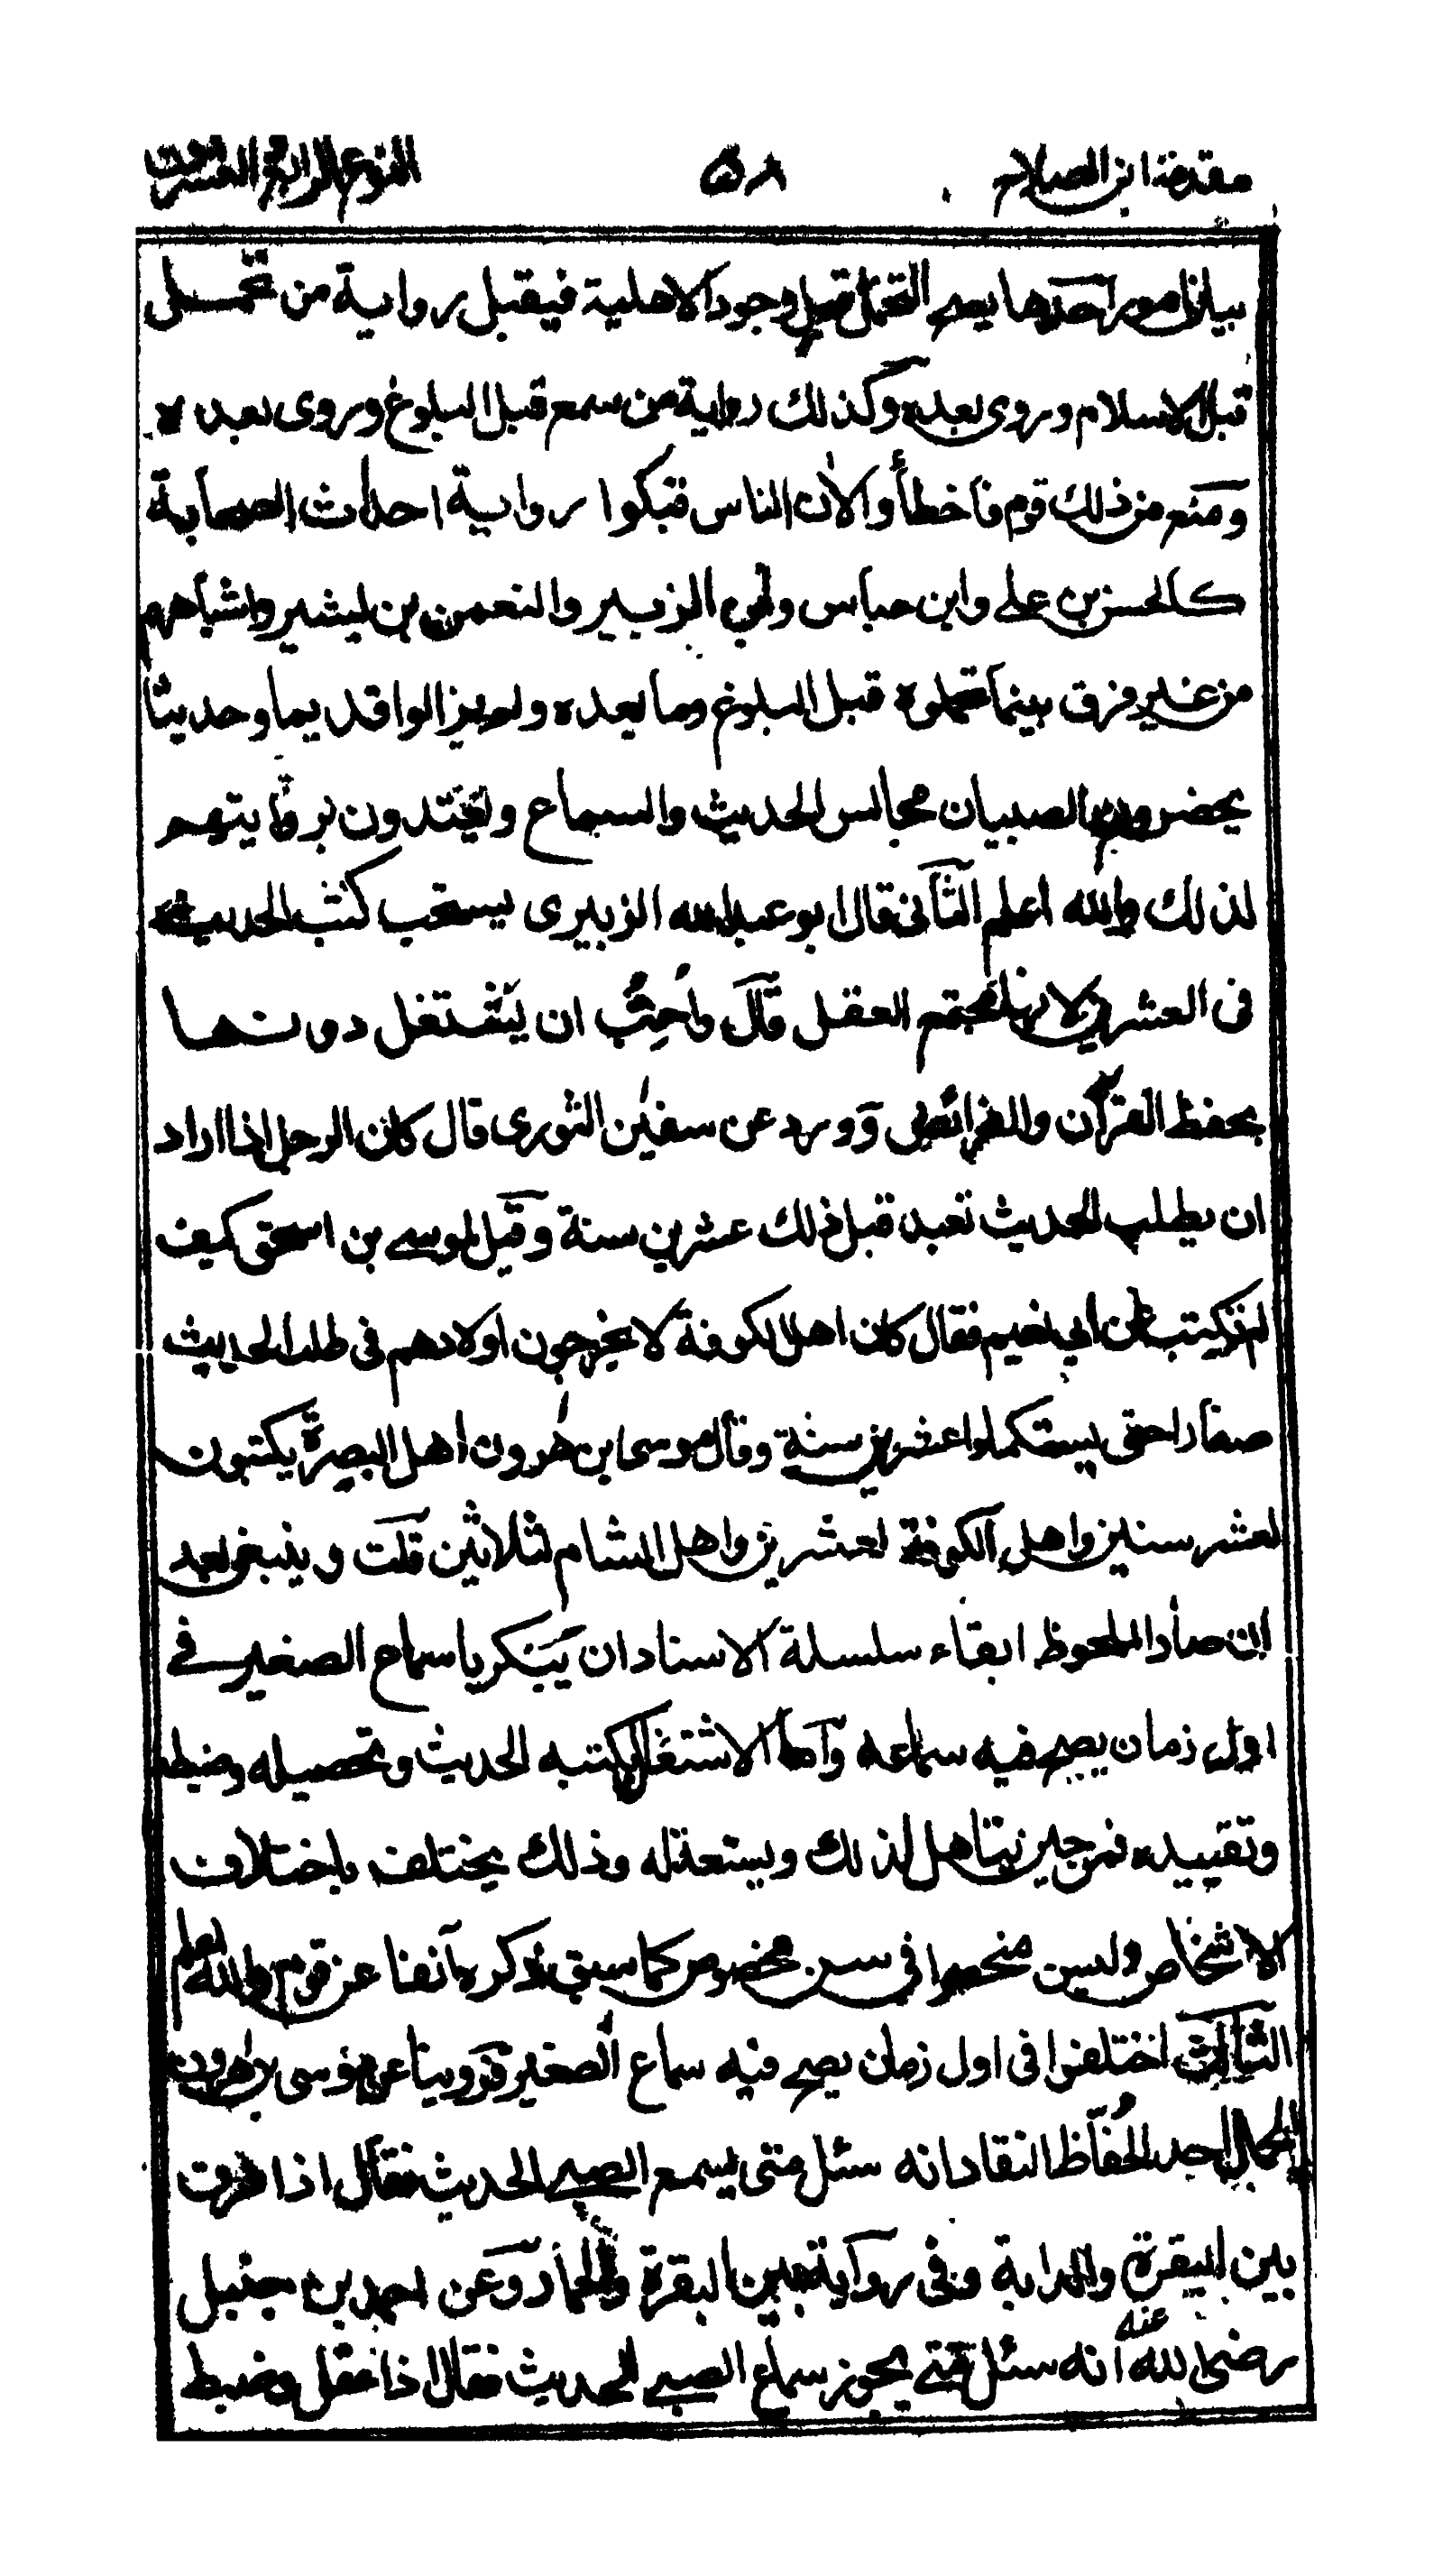 مقدمة ابن الصلاح ٥٨ النوع الرابع والعشرون
بيان امور احدها يصح التحمل قبل وجود الاهلية فيقبل رواية من تحمل
قبل الاسلام وروى بعده وكذلك رواية من سمع قبل البلوغ وروى بعده
ومنع من ذلك قوم فاخطأوا لان الناس قبلوا رواية احداث الصحابة
كالحسن بن علي وابن عباس وابن الزبير والنعمن بن بشير واشباههم
من غير فرق بينما تحملوه قبل البلوغ وما بعده ولم يزالوا قديما وحديثا
يحضرون الصبيان مجالس الحديث والسماع ويعتدون بروايتهم
لذلك والله اعلم الثاني قال ابو عبد الله الزبيرى يستحب كتب الحديث
فى العشرين لانها مجتمع العقل قال واُحِبُّ ان يشتغل دونها
بحفظ القرآن والفرائض وورد عن سفين الثورى قال كان الرجل اذا اراد
ان يطلب الحديث تعبد قبل ذلك عشرين سنة وقيل لموسى بن اسحق كيف
لم تكتب عن ابي نعيم فقال كان اهل الكوفة لا يخرجون اولادهم فى طلب الحديث
صغارا حتى يستكملوا عشرين سنة وقال موسى ابن هرون اهل البصرة يكتبون
لعشر سنين واهل الكوفة لعشرين واهل الشام لثلاثين قلت وينبغى بعد
ان صار الملحوظ ابقاء سلسلة الاسناد ان يبكر باسماع الصغير في
اول زمان يصح فيه سماعه واما الاشتغال بكتبه الحديث وتحصيله وضبطه
وتقييده فمن حين يتاهل لذلك ويستعد له وذلك يختلف باختلاف
الاشخاص وليس منحصرا فى سن مخصوص كما سبق ذكره آنفا عن قوم والله اعلم
الثالث اختلفوا فى اول زمان يصح فيه سماع الصغير فروينا عن موسى بن هرون
الحمال احد الحُفّاظ النقاد انه سئل متى يسمع الصبي الحديث فقال اذا فرق
بين البقرة والدابة وفى رواية بين البقرة والحمار وعن احمد بن حنبل
رضى الله عنه انه سئل متى يجوز سماع الصبي الحديث فقال اذا عقل وضبط